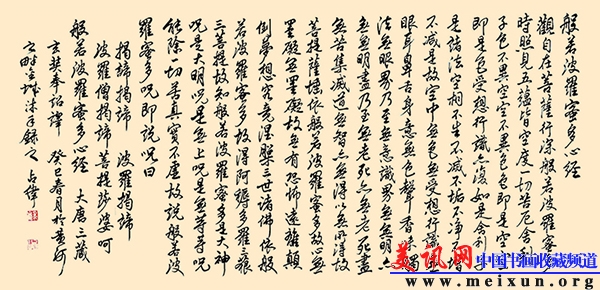 般若波羅蜜多心經
觀自在菩薩行深般若波羅蜜多
時照見五蘊皆空度一切苦厄舍利
子色不異空空不異色色即是空空
即是色受想行識亦復如是舍利子
是諸法空相不生不滅不垢不淨不增
不減是故空中無色無受想行識無
眼耳鼻舌身意無色聲香味觸
法無眼界乃至無意識界無無明亦
無無明盡乃至無老死亦無老死盡
無苦集滅道無智亦無得以無所得故
菩提薩埵依般若波羅蜜多故心無
罣礙無罣礙故無有恐怖遠離顛
倒夢想究竟涅槃三世諸佛依般
若波羅蜜多故得阿耨多羅三藐
三菩提故知般若波羅蜜多是大神
咒是大明咒是無上咒是無等等咒
能除一切苦真實不虛故說般若波
羅蜜多咒即說咒曰
揭諦揭諦 波羅揭諦
波羅僧揭諦菩提莎婆呵
般若波羅蜜多心經 大唐三藏
玄奘奉詔譯 癸巳春月於黃河
之畔金城沐手錄之
美讯网 中国书画收藏频道
www.meixun.net